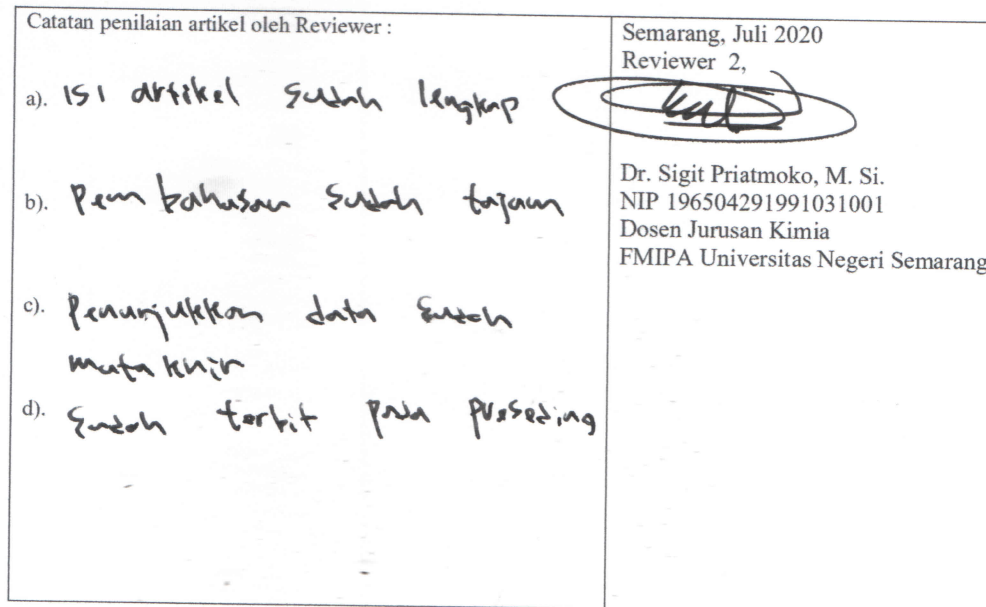 Catatan penilaian artikel oleh Reviewer :
a). Isi artikel sudah lengkap
b). Pembahasan sudah tajam
c). Penunjukkan data sudah
mutakhir
d). Sudah terbit pada proseding
Semarang, Juli 2020
Reviewer 2,
Dr. Sigit Priatmoko, M. Si.
NIP 196504291991031001
Dosen Jurusan Kimia
FMIPA Universitas Negeri Semarang